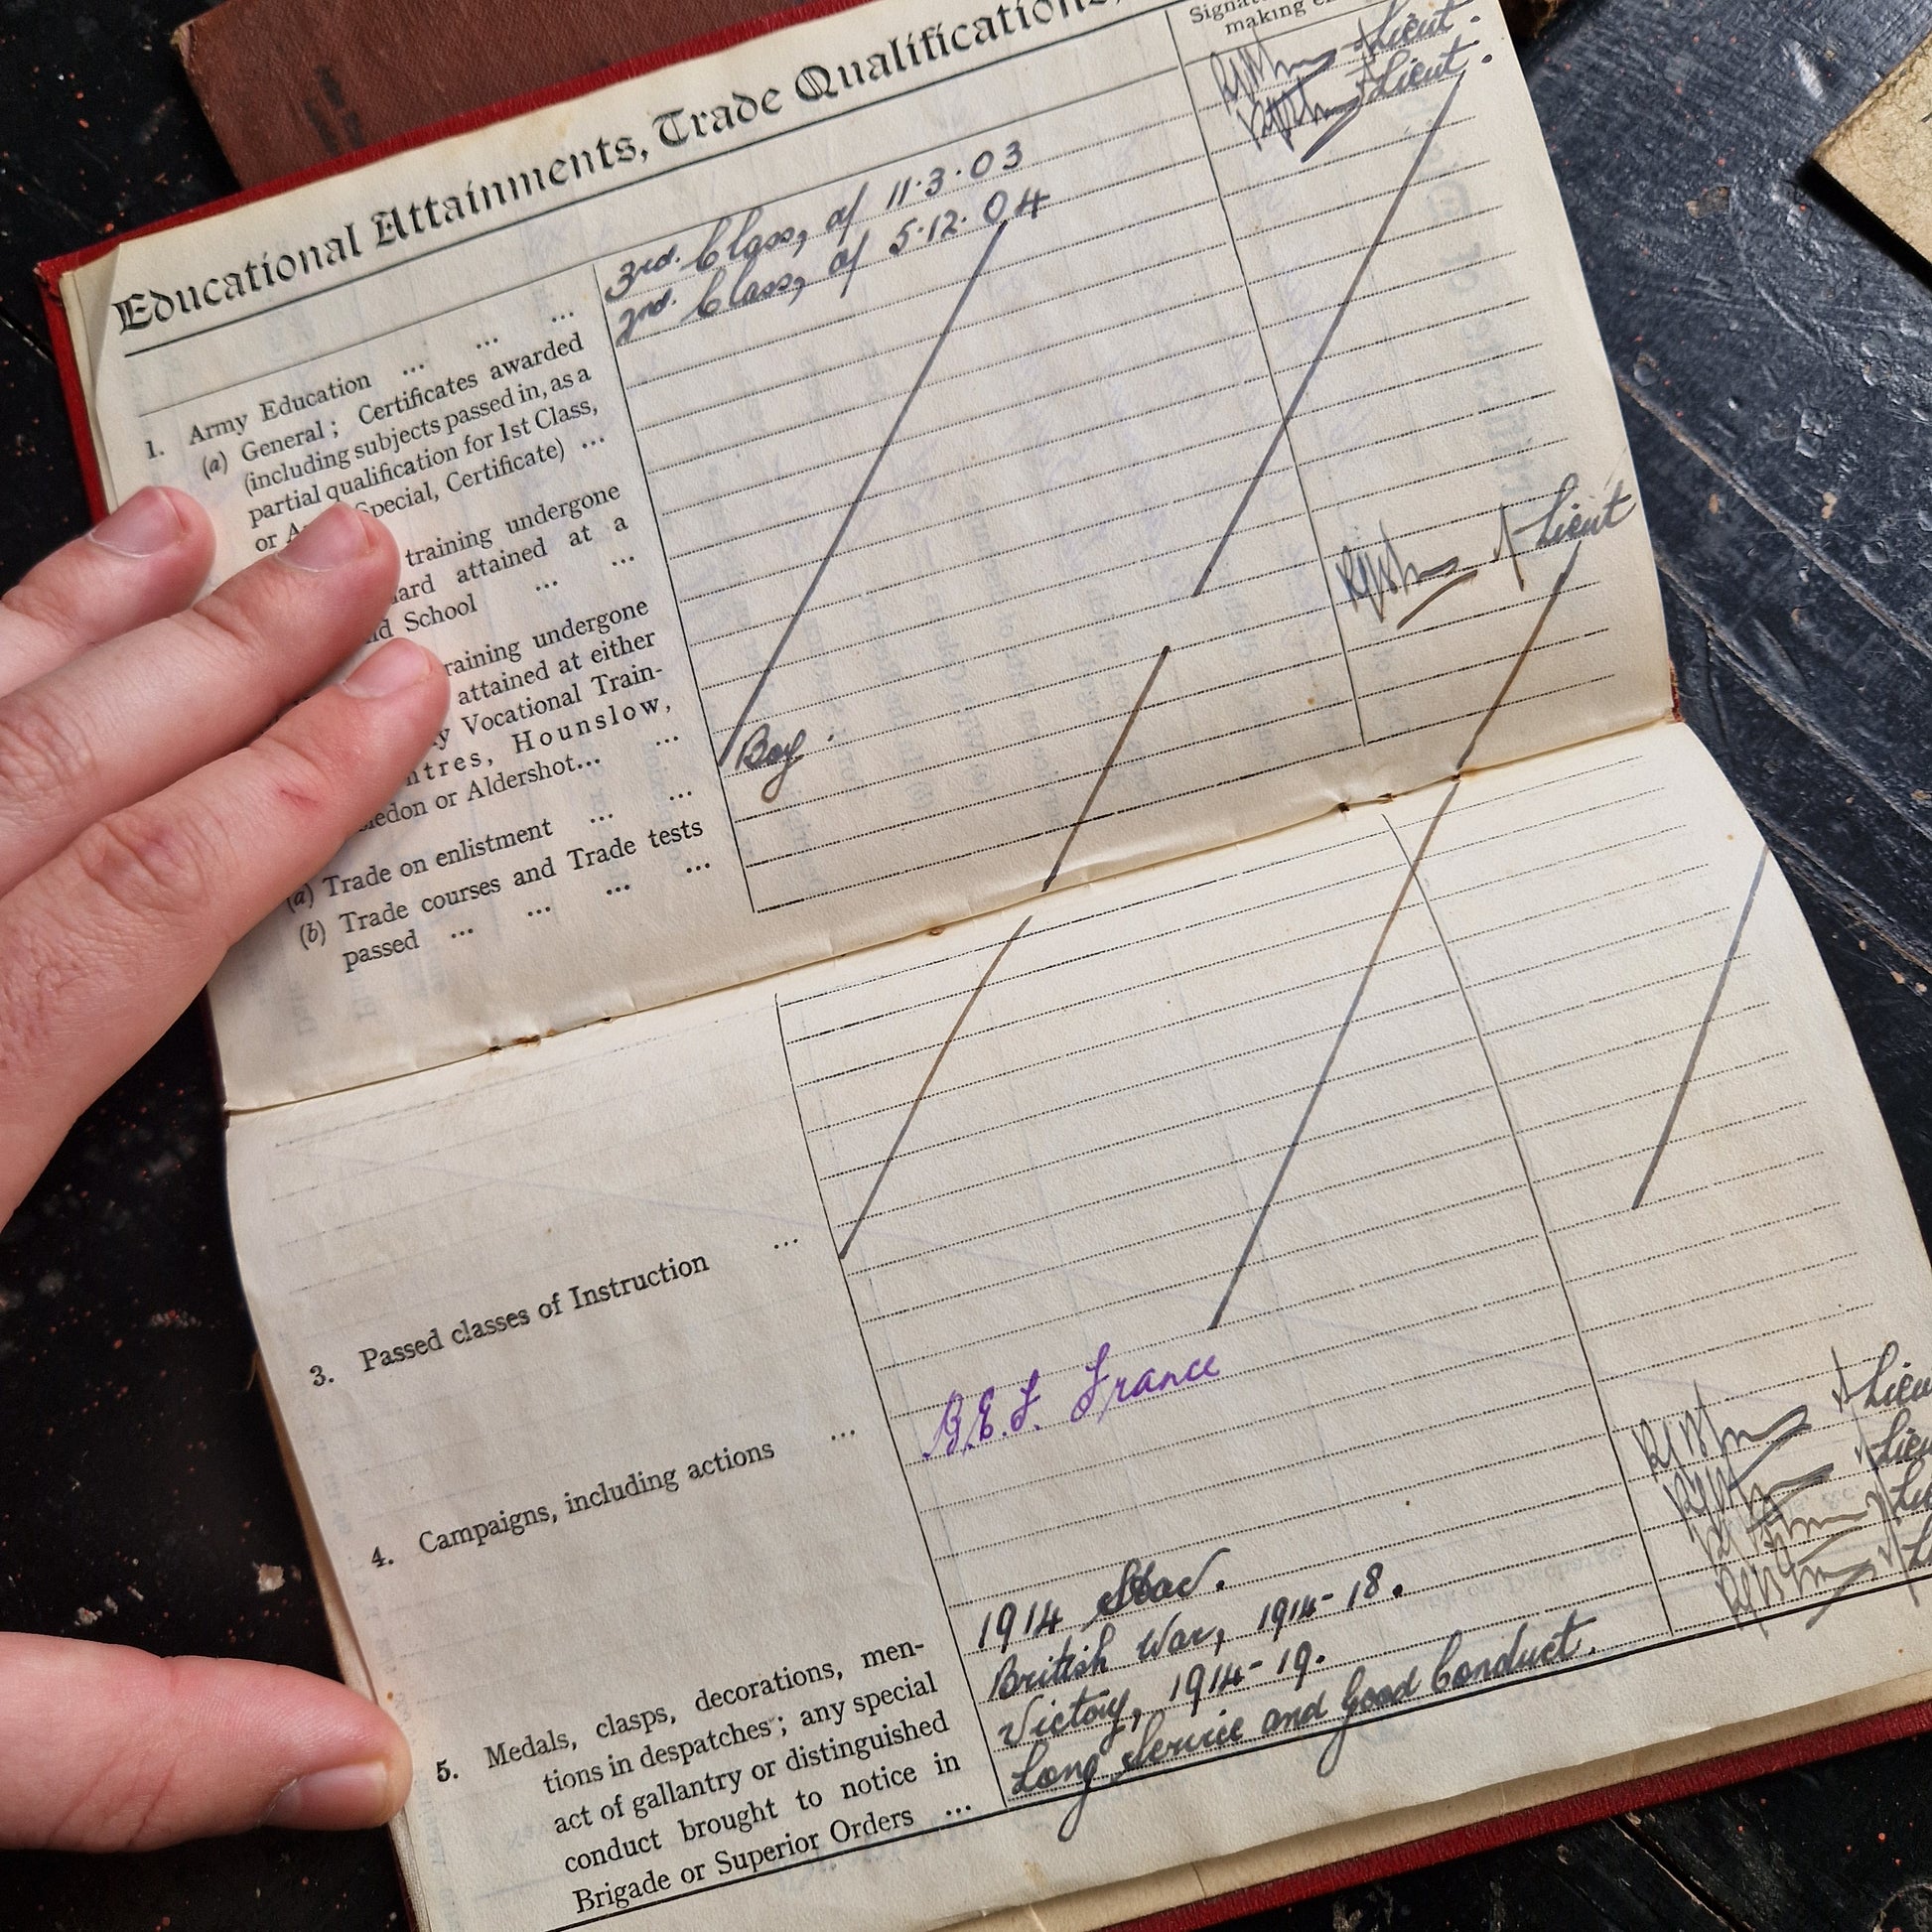 Educational Attainments, Trade Qualifications,
making
1. Army Education ... ... ...
(a) General; Certificates awarded
(including subjects passed in, as a
partial qualification for 1st Class,
or Special, Certificate) ...
3rd. Class, of 11.3.03
2nd. Class, of 5.12.04
Lieut.
Lieut.
training undergone
attained at a
School ... ...
training undergone
attained at either
Vocational Train-
Hounslow,
or Aldershot... ...
(a) Trade on enlistment ... ...
Boy.
Lieut
(b) Trade courses and Trade tests
passed ... ... ... ...
3. Passed classes of Instruction ...
4. Campaigns, including actions ...
B.E.F. France
5. Medals, clasps, decorations, men-
tions in despatches; any special
act of gallantry or distinguished
conduct brought to notice in
Brigade or Superior Orders ...
1914 Star.
British War, 1914-18.
Victory, 1914-19.
Long Service and Good Conduct.